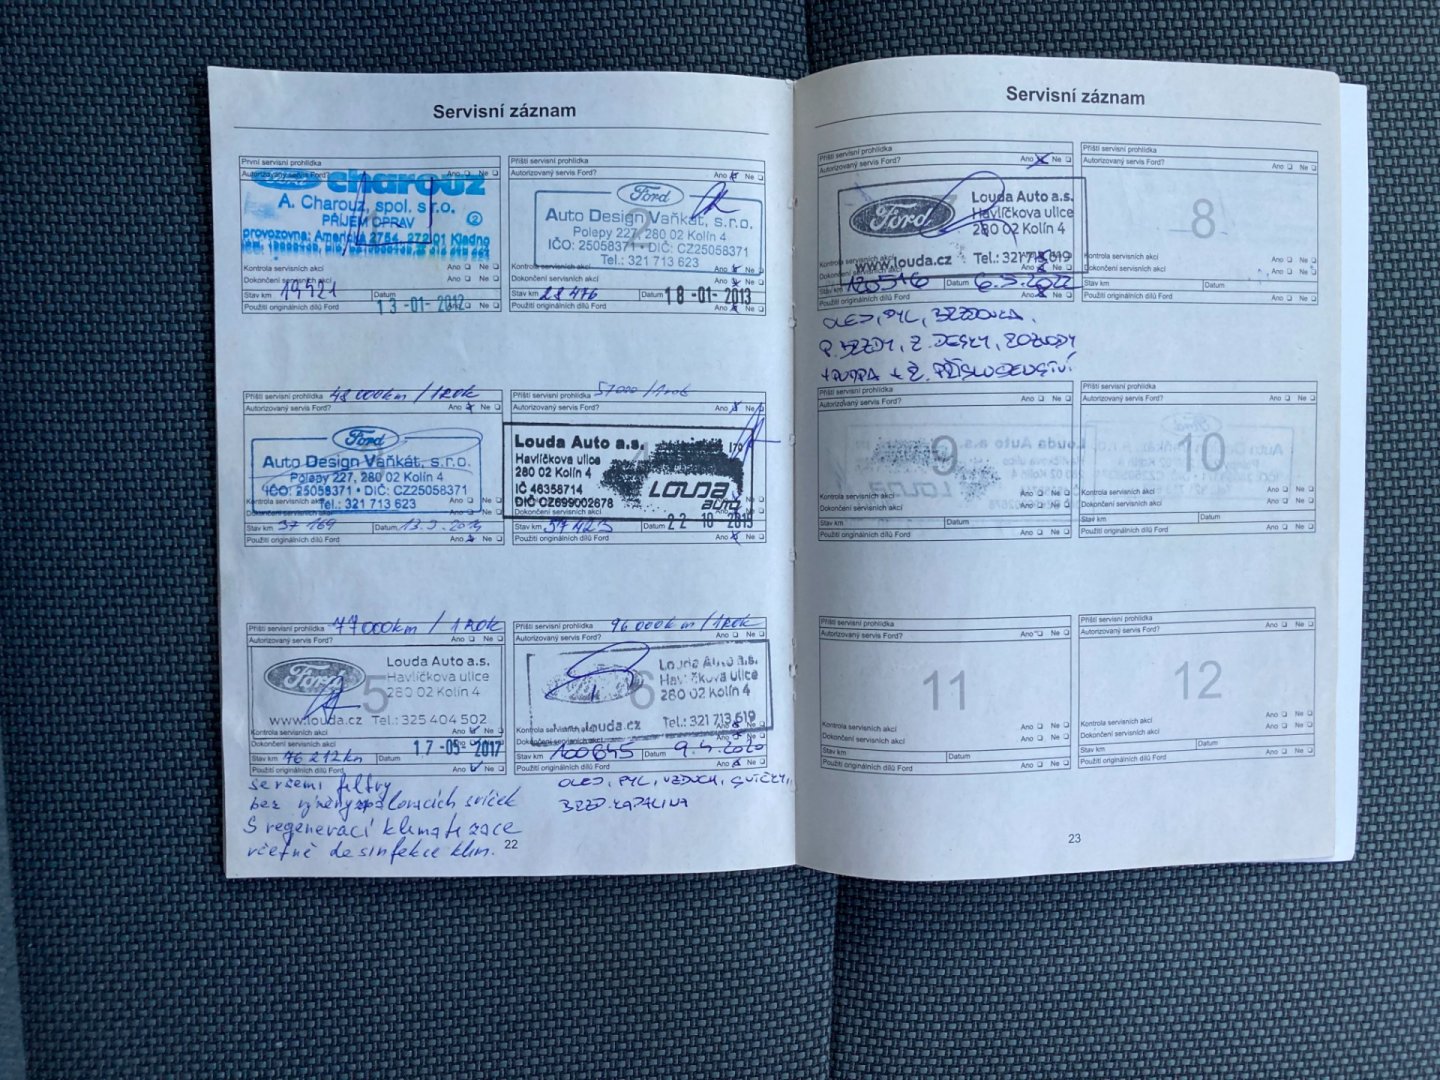 Servisní záznam
První servisní prohlídka
Autorizovaný servis Ford? Ano Ne
Ford charouz
A. Charouz, spol. s r.o.
PŘÍJEM OPRAV 2
provozovna: Americká 2754, 272 01 Kladno
Kontrola servisních akcí Ano Ne
Dokončení servisních akcí Ano Ne
Stav km Datum
13-01-2012
Použití originálních dílů Ford Ano Ne
Příští servisní prohlídka
Autorizovaný servis Ford? Ano Ne
Ford
2
Auto Design Vaňkát, s.r.o.
Polepy 227, 280 02 Kolín 4
IČO: 25058371 • DIČ: CZ25058371
Tel.: 321 713 623
Kontrola servisních akcí Ano Ne
Dokončení servisních akcí Ano Ne
Stav km 28 476 Datum 18-01-2013
Použití originálních dílů Ford Ano Ne
Příští servisní prohlídka 48 000km / 1 rok
Autorizovaný servis Ford? Ano Ne
Ford
Auto Design Vaňkát, s.r.o.
Polepy 227, 280 02 Kolín 4
IČO: 25058371 • DIČ: CZ25058371
Tel.: 321 713 623
Kontrola servisních akcí Ano Ne
Dokončení servisních akcí Ano Ne
Stav km 37 169 Datum
Použití originálních dílů Ford Ano Ne
57000 / 1rok
Příští servisní prohlídka
Autorizovaný servis Ford? Ano Ne
4
Louda Auto a.s.
Havlíčkova ulice
280 02 Kolín 4
IČ 46358714
DIČ CZ699002678
LOUDA
AUTO
Dokončení servisních akcí
Stav km 57423 Datum 22 10 2015
Použití originálních dílů Ford Ano Ne
Příští servisní prohlídka 77000km / 1 Rok
Autorizovaný servis Ford? Ano Ne
Ford
5
Louda Auto a.s.
Havlíčkova ulice
280 02 Kolín 4
www.louda.cz Tel.: 325 404 502
Kontrola servisních akcí Ano Ne
Dokončení servisních akcí Ano Ne
Stav km 76 272km Datum 17-05-2017
Použití originálních dílů Ford Ano Ne
se všemi filtry
bez výměny zapalovacích svíček
S regenerací klimatizace
včetně desinfekce klim.
22
96 000km / 1 Rok
Příští servisní prohlídka
Autorizovaný servis Ford? Ano Ne
6
Louda Auto a.s.
Havlíčkova ulice
280 02 Kolín 4
www.louda.cz Tel.: 321 713 619
Kontrola servisních akcí Ano Ne
Dokončení servisních akcí Ano Ne
Stav km 100645 Datum 9.4.2020
Použití originálních dílů Ford Ano Ne
OLEJ, PYL, VZDUCH, SVÍČKY,
BRZD. KAPALINA
Servisní záznam
Příští servisní prohlídka
Autorizovaný servis Ford? Ano Ne
Ford
7
Louda Auto a.s.
Havlíčkova ulice
280 02 Kolín 4
www.louda.cz Tel.: 321 713 619
Kontrola servisních akcí
Dokončení servisních akcí
Stav km 120516 Datum 6.5.2022
Použití originálních dílů Ford Ano Ne
OLEJ, PYL, BRZDOVKA,
P. BRZDY, Z. DESKY, ROZVODY
+ PUMPA + Ž. PŘÍSLUŠENSTVÍ
Příští servisní prohlídka
Autorizovaný servis Ford? Ano Ne
8
Kontrola servisních akcí Ano Ne
Dokončení servisních akcí Ano Ne
Stav km Datum
Použití originálních dílů Ford Ano Ne
Příští servisní prohlídka
Autorizovaný servis Ford? Ano Ne
9
Kontrola servisních akcí Ano Ne
Dokončení servisních akcí Ano Ne
Stav km Datum
Použití originálních dílů Ford Ano Ne
Příští servisní prohlídka
Autorizovaný servis Ford? Ano Ne
10
Kontrola servisních akcí Ano Ne
Dokončení servisních akcí Ano Ne
Stav km Datum
Použití originálních dílů Ford Ano Ne
Příští servisní prohlídka
Autorizovaný servis Ford? Ano Ne
11
Kontrola servisních akcí Ano Ne
Dokončení servisních akcí Ano Ne
Stav km Datum
Použití originálních dílů Ford Ano Ne
Příští servisní prohlídka
Autorizovaný servis Ford? Ano Ne
12
Kontrola servisních akcí Ano Ne
Dokončení servisních akcí Ano Ne
Stav km Datum
Použití originálních dílů Ford Ano Ne
23